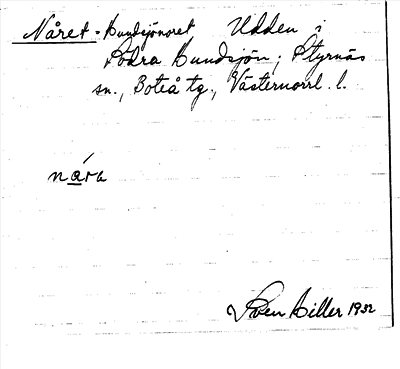 Nåret - Hundsjönoret Udden i
Södra Hundsjön; Styrnäs
sn., Boteå tg., Västernorrl. l.
nára
Sven Hiller 1932